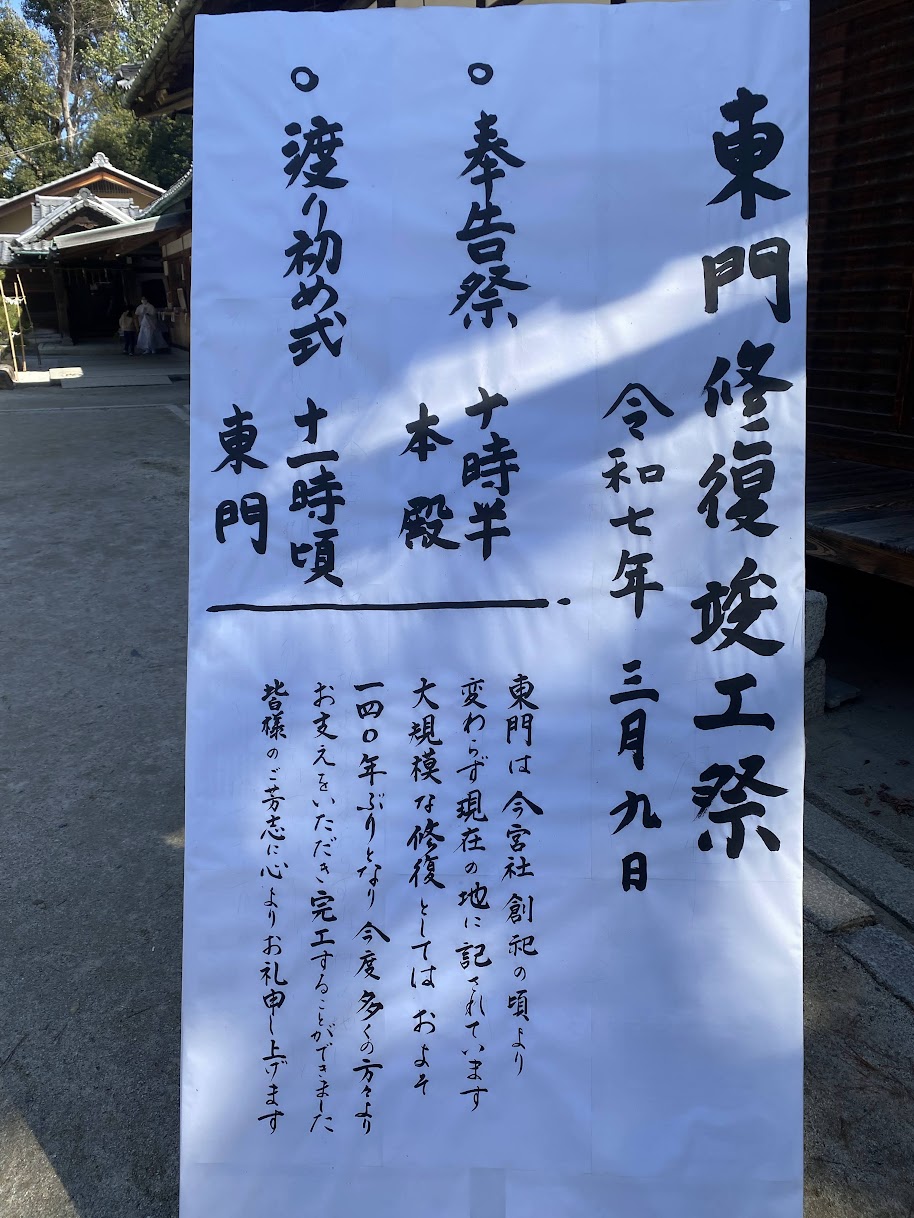 東門修復竣工祭
令和七年 三月九日
○奉告祭 十時半
本殿
○渡り初め式 十一時頃
東門
東門は今宮社創祀の頃より
変わらず現在の地に記されています
大規模な修復としてはおよそ
一四〇年ぶりとなり今度多くの方々より
お支えをいただき完工することができました
皆様のご芳志に心よりお礼申し上げます